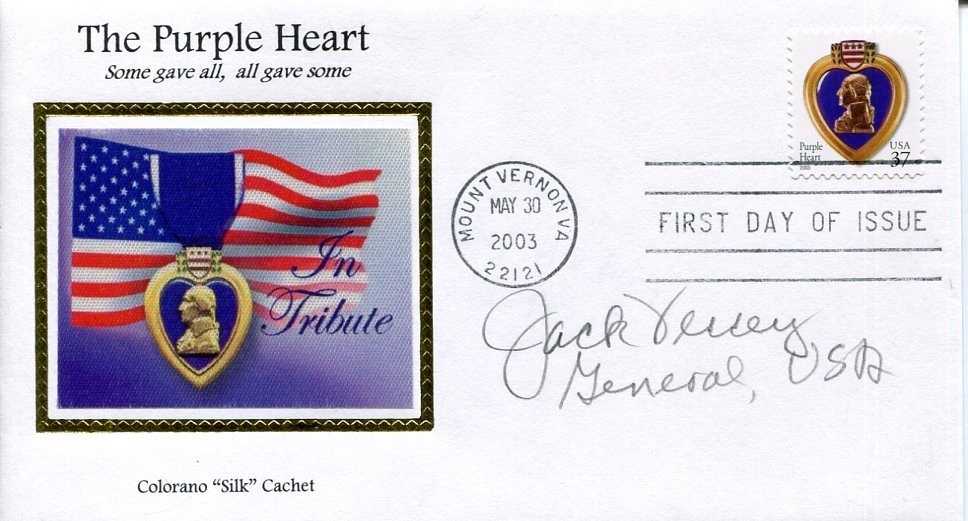 The Purple Heart
Some gave all, all gave some
In
Tribute
Colorano "Silk" Cachet
Purple
Heart
2003
USA
37
MOUNT VERNON VA
MAY 30
2003
22121
FIRST DAY OF ISSUE
Jack Vessey
General, USA